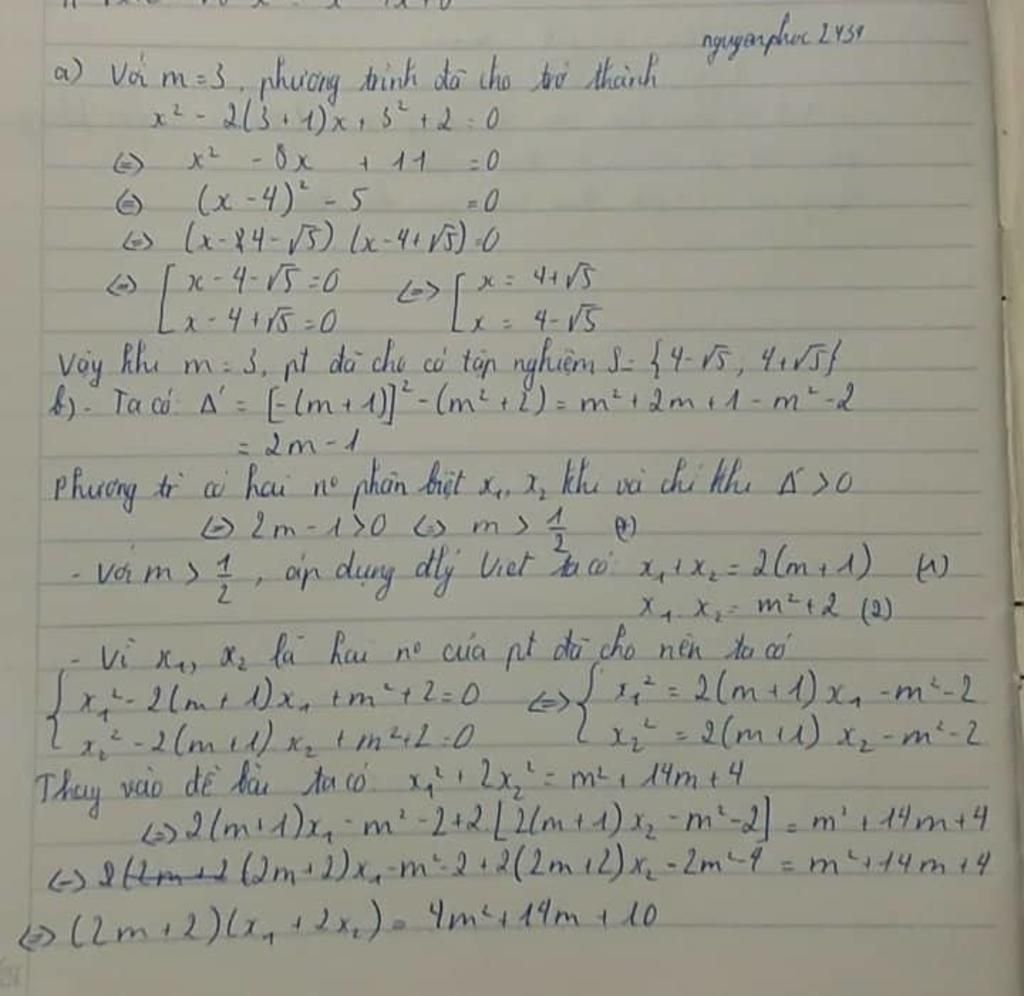 nguyenphuc 2434
a) Với m = 3, phương trình đã cho trở thành
x² - 2(3 + 1)x + 3² + 2 = 0
⇔ x² - 8x + 11 = 0
⇔ (x - 4)² - 5 = 0
⇔ (x - 4 - √5) (x - 4 + √5) = 0
⇔ [ x - 4 - √5 = 0 ⇔ [ x = 4 + √5
x - 4 + √5 = 0 x = 4 - √5
Vậy khi m = 3, pt đã cho có tập nghiệm S = {4 - √5; 4 + √5}
b) - Ta có: Δ' = [-(m + 1)]² - (m² + 2) = m² + 2m + 1 - m² - 2
= 2m - 1
Phương tr có hai no phân biệt x₁, x₂ khi và chỉ khi Δ' > 0
⇔ 2m - 1 > 0 ⇔ m > 1/2 (*)
- Với m > 1/2, áp dụng đlý Viet ta có: x₁ + x₂ = 2(m + 1) (1)
x₁. x₂ = m² + 2 (2)
- Vì x₁, x₂ là hai no của pt đã cho nên ta có
{ x₁² - 2(m + 1)x₁ + m² + 2 = 0 ⇔ { x₁² = 2(m + 1)x₁ - m² - 2
x₂² - 2(m + 1)x₂ + m² + 2 = 0 x₂² = 2(m + 1)x₂ - m² - 2
Thay vào đề bài ta có: x₁² + 2x₂² = m² + 14m + 4
⇔ 2(m + 1)x₁ - m² - 2 + 2[2(m + 1)x₂ - m² - 2] = m² + 14m + 4
⇔ (2m + 2)x₁ - m² - 2 + 2(2m + 2)x₂ - 2m² - 4 = m² + 14m + 4
⇔ (2m + 2)(x₁ + 2x₂) = 4m² + 14m + 10